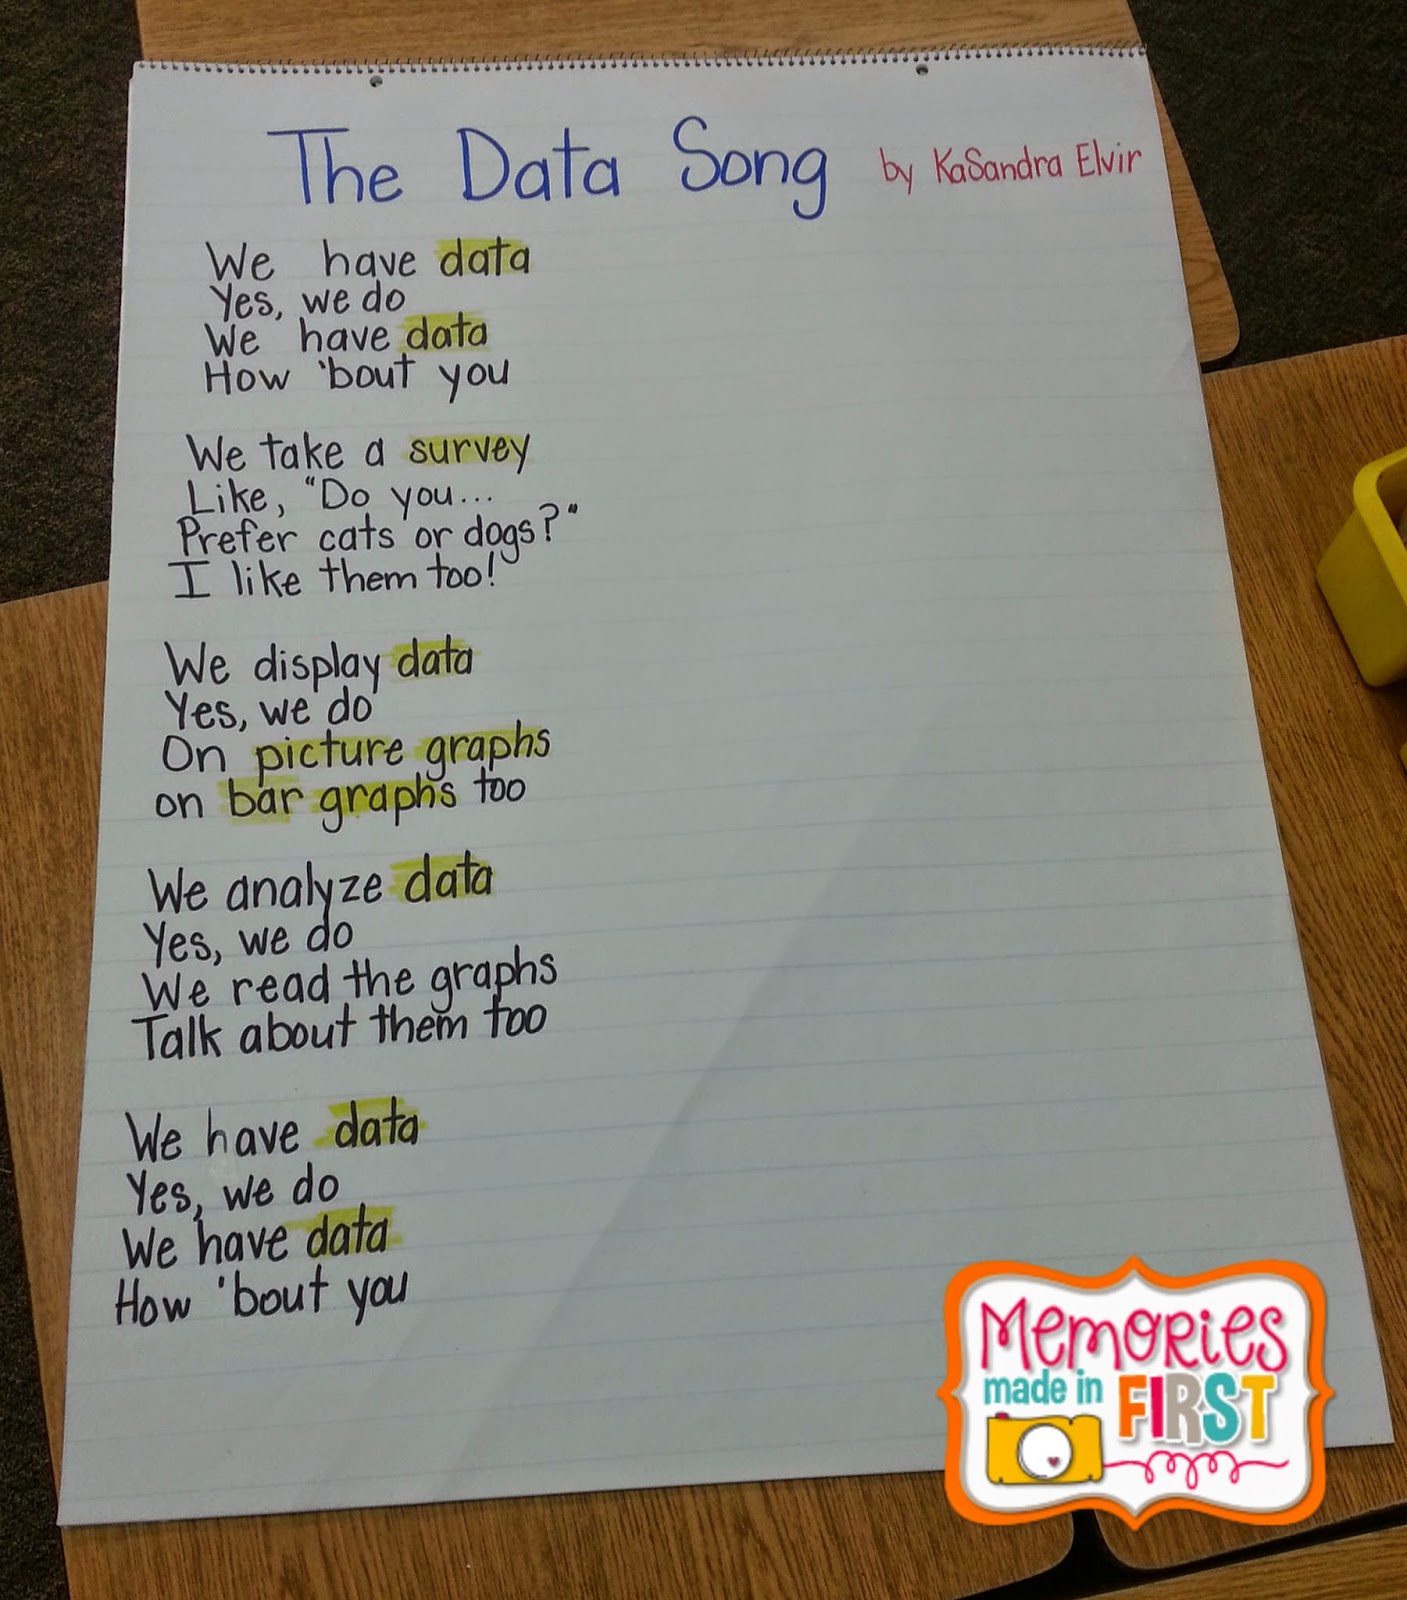 The Data Song by KaSandra Elvir
We have data
Yes, we do
We have data
How 'bout you
We take a survey
Like, "Do you...
Prefer cats or dogs?"
I like them too!
We display data
Yes, we do
On picture graphs
on bar graphs too
We analyze data
Yes, we do
We read the graphs
Talk about them too
We have data
Yes, we do
We have data
How 'bout you
MEMORIES
made in FIRST